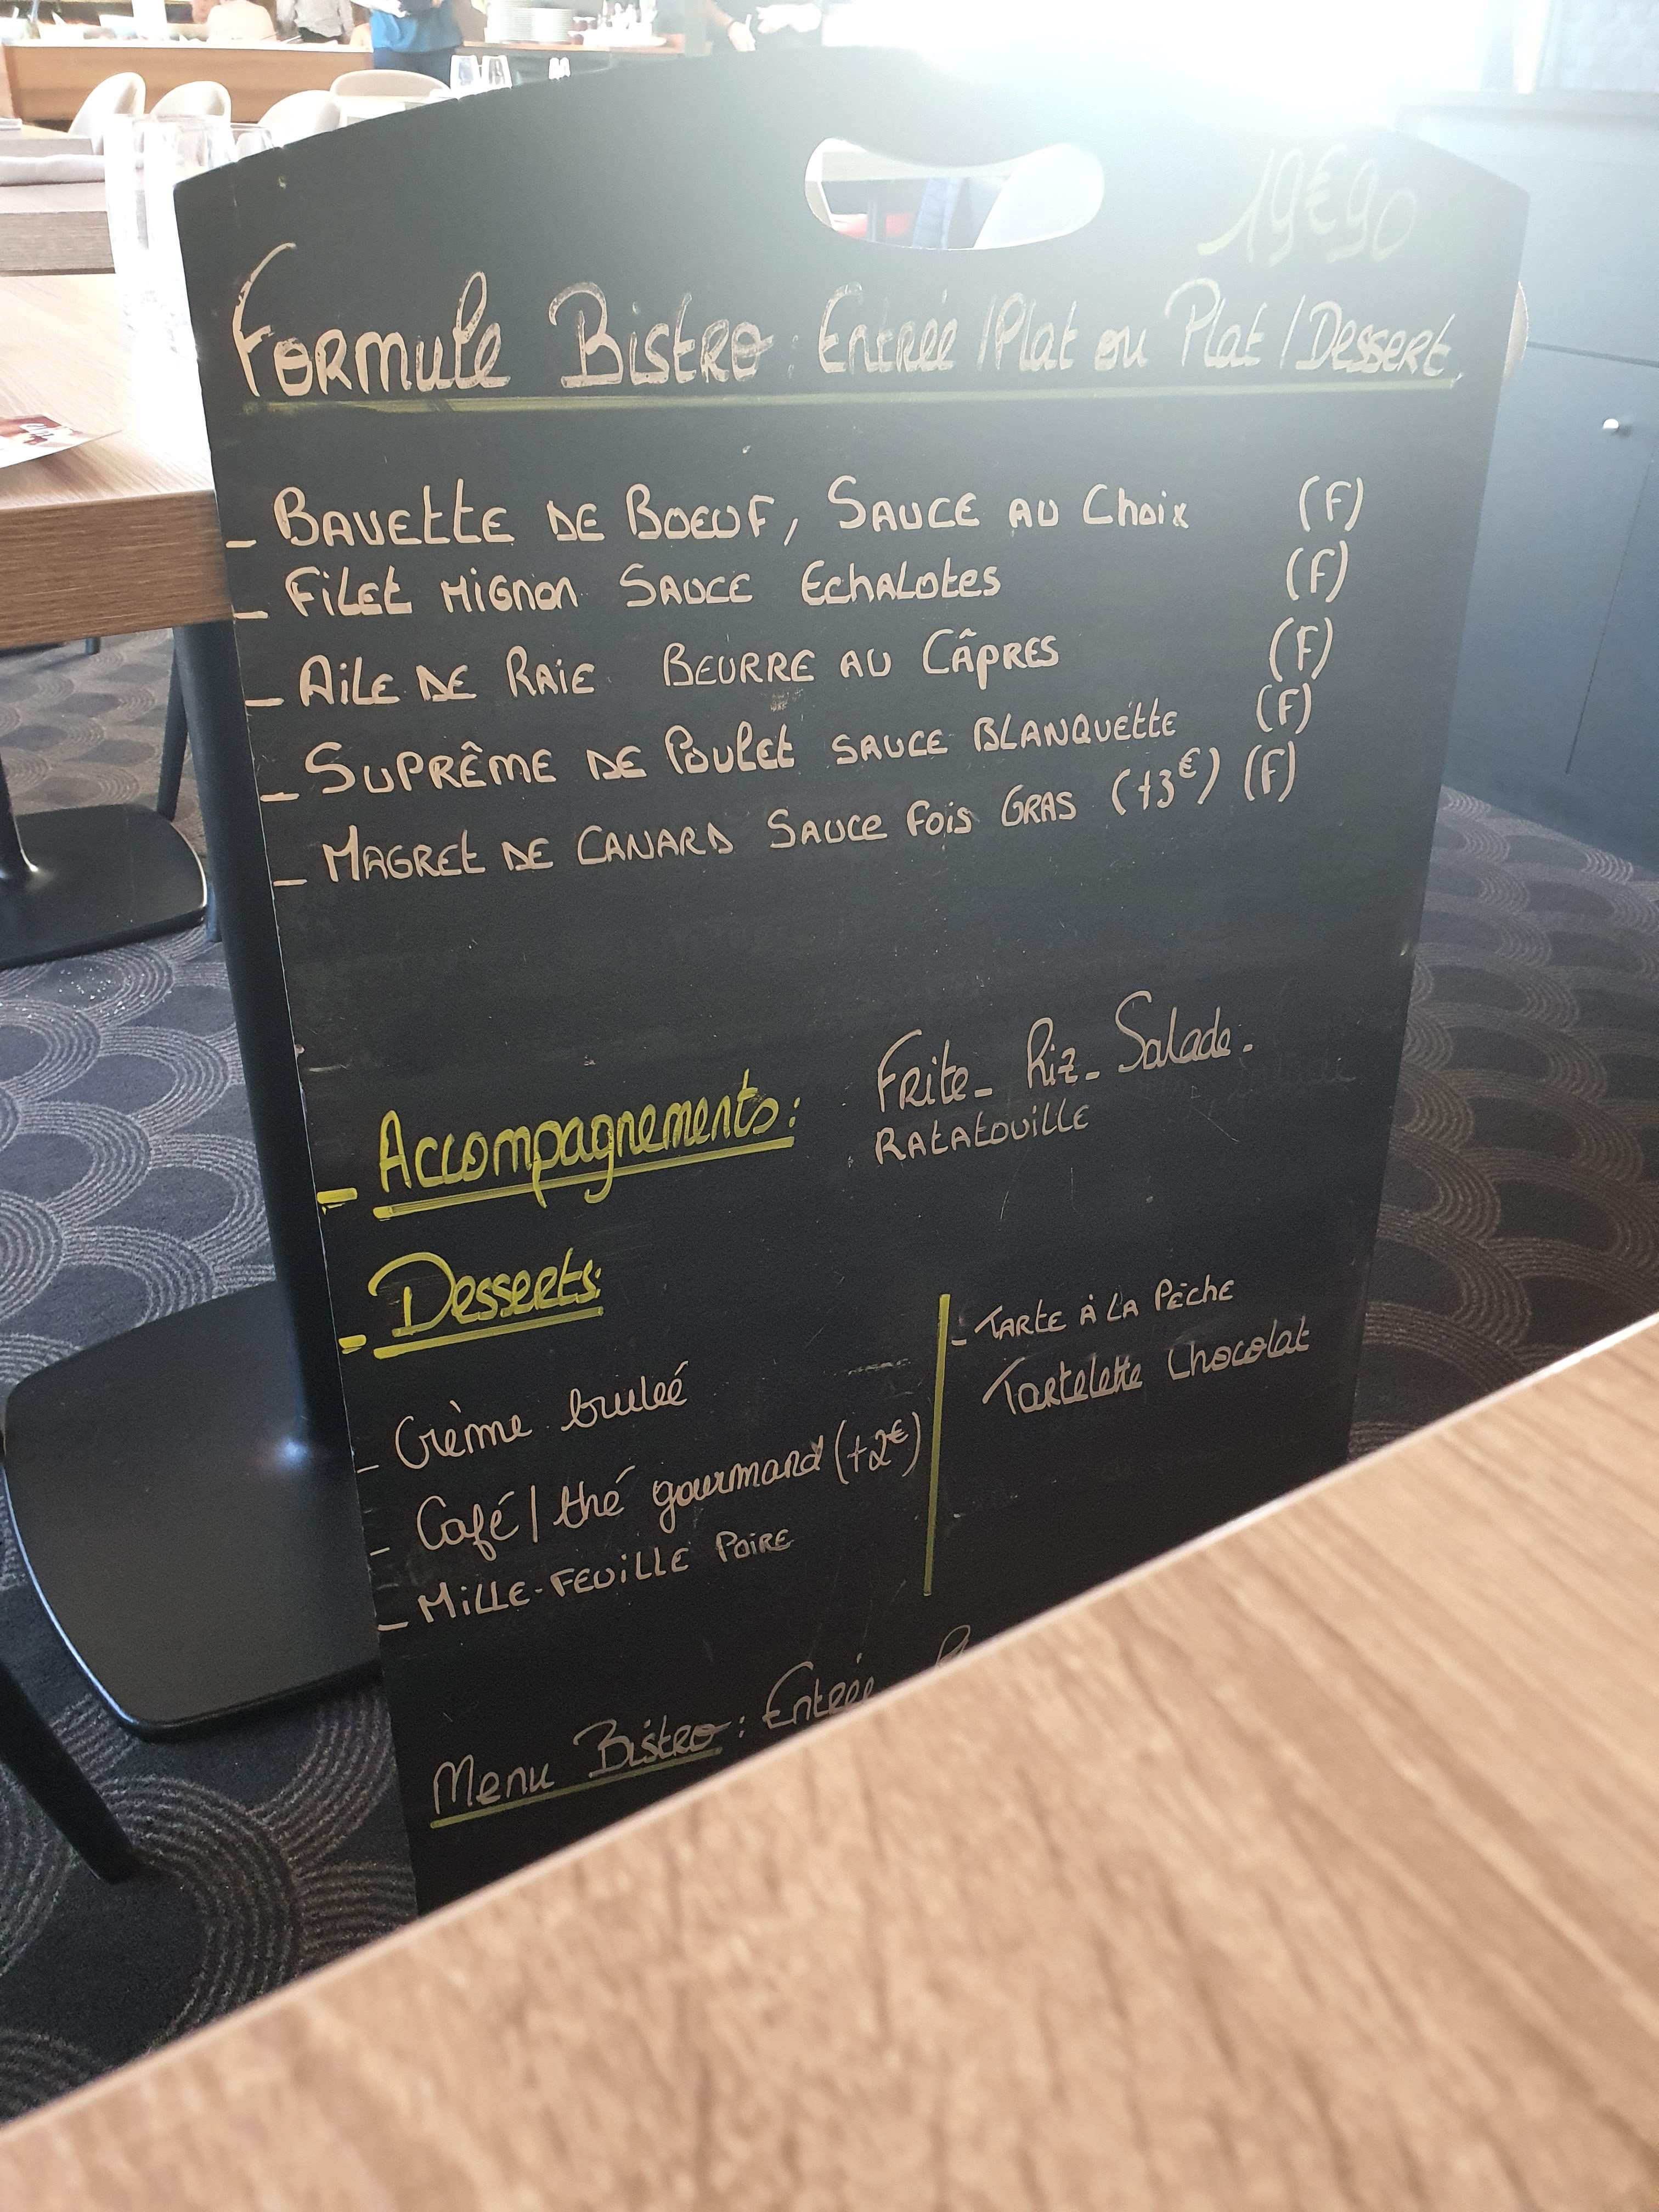 19€90
Formule Bistro : Entrée / Plat ou Plat / Dessert
_ Bavette de Boeuf, Sauce au Choix (F)
_ Filet Mignon Sauce Echalotes (F)
_ Aile de Raie Beurre au Câpres (F)
_ Suprême de Poulet sauce Blanquette (F)
_ Magret de Canard Sauce Fois Gras (+3€) (F)
_ Accompagnements : Frite_ Riz_ Salade.
Ratatouille
_ Desserts:
_ Crème bruleé
_ Café / thé gourmand (+2€)
_ Mille-Feuille Poire
_ Tarte à la Pèche
Tartelette Chocolat
Menu Bistro : Entrée